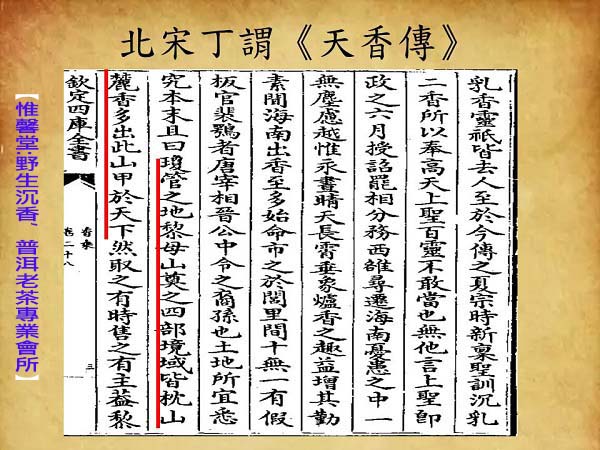 北宋丁謂《天香傳》
乳香靈祇皆去人至於今傳之夏宗時新稟聖訓沉乳
二香所以奉高天上聖百靈不敢當也無他言上聖即
政之六月授詔罷相分務西雒尋遷海南憂患之中一
無塵慮越惟永晝晴天長霄垂象爐香之趣益增其勤
素聞海南出香至多始命市之於閭里間十無一有假
板官裴鶚者唐宰相晉公中令之裔孫也土地所宜悉
究本末且曰瓊管之地黎母山奠之四部境域皆枕山
麓香多出此山甲於天下然取之有時售之有主蓋黎
欽定四庫全書
香乘
卷二十八
三
【惟馨堂:野生沉香、普洱老茶專業會所】